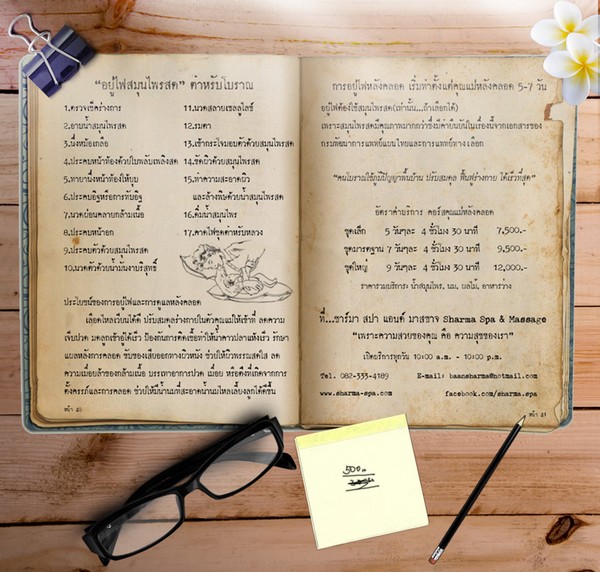 "อยู่ไฟสมุนไพรสด" ตำหรับโบราณ
1.ตรวจเช็คร่างการ
2.อาบน้ำสมุนไพรสด
3.นึ่งหม้อเกลือ
4.ประคบหน้าท้องด้วยใบพลับเพลิงสด
5.ทายานั่งหน้าท้องให้ยุบ
6.ประคบอิฐหรือการทับอิฐ
7.นวดผ่อนคลายกล้ามเนื้อ
8.ประคบหน้าอก
9.ประคบตัวด้วยสมุนไพรสด
10.นวดตัวด้วยน้ำมันงาบริสุทธิ์
11.นวดสลายเซลลูไลซ์
12.รมตา
13.เข้ากระโจมอบตัวด้วยสมุนไพรสด
14.ขัดผิวด้วยสมุนไพรสด
15.ทำความสะอาดผิว
และล้างพิษด้วยน้ำสมุนไพรสด
16.ดื่มน้ำสมุนไพร
17.คาดไฟชุดตำหรับหลวง
ประโยชน์ของการอยู่ไฟและการดูแลหลังคลอด
เลือดไหลเวียนได้ดี ปรับสมดุลร่างกายในตัวคุณแม่ให้เข้าที่ ลดความ
เจ็บปวด มดลูกเข้าอู่ได้เร็ว ป้องกันการติดเชื้อทำให้น้ำคาวปลาแห้งเร็ว รักษา
แผลหลังการคลอด ขับของเสียออกทางผิวหนัง ช่วยให้ผิวพรรณสดใส ลด
ความเมื่อยล้าของกล้ามเนื้อ บรรเทาอาการปวด เมื่อย หรือตึงที่เกิดจากการ
ตั้งครรภ์และการคลอด ช่วยให้มีน้ำนมที่สะอาดน้ำนมไหลเลี้ยงลูกได้ดีขึ้น
หน้า 40
การอยู่ไฟหลังคลอด เริ่มทำตั้งแต่คุณแม่หลังคลอด 5-7 วัน
อยู่ไฟต้องใช้สมุนไพรสด(เท่านั้น...ถ้าเลือกได้)
เพราะสมุนไพรสดมีคุณภาพมากกว่าซึ่งมีคำยืนยันในเรื่องนี้จากเอกสารของ
กรมพัฒนาการแพทย์แบบไทยและการแพทย์ทางเลือก
"คนโบราณใช้ภูมิปัญญาพื้นบ้าน ปรับสมดุล ฟื้นฟูร่างกาย ได้เร็วที่สุด"
อัตราค่าบริการ คอร์สคุณแม่หลังคลอด
ชุดเล็ก 5 วันๆละ 4 ชั่วโมง 30 นาที 7,500.-
ชุดมาตรฐาน 7 วันๆละ 4 ชั่วโมง 30 นาที 9,500.-
ชุดใหญ่ 9 วันๆละ 4 ชั่วโมง 30 นาที 12,000.-
ราคารวมบริการ: น้ำสมุนไพร, นม, ผลไม้, อาหารว่าง
ที่...ชาร์มา สปา แอนด์ มาสซาจ Sharma Spa & Massage
"เพราะความสวยของคุณ คือ ความสุขของเรา"
เปิดบริการทุกวัน 10:00 a.m. - 10:00 p.m.
Tel. 082-333-4189 E-mail: baansharma@hotmail.com
www.sharma-spa.com facebook.com/sharma.spa
หน้า 41
500